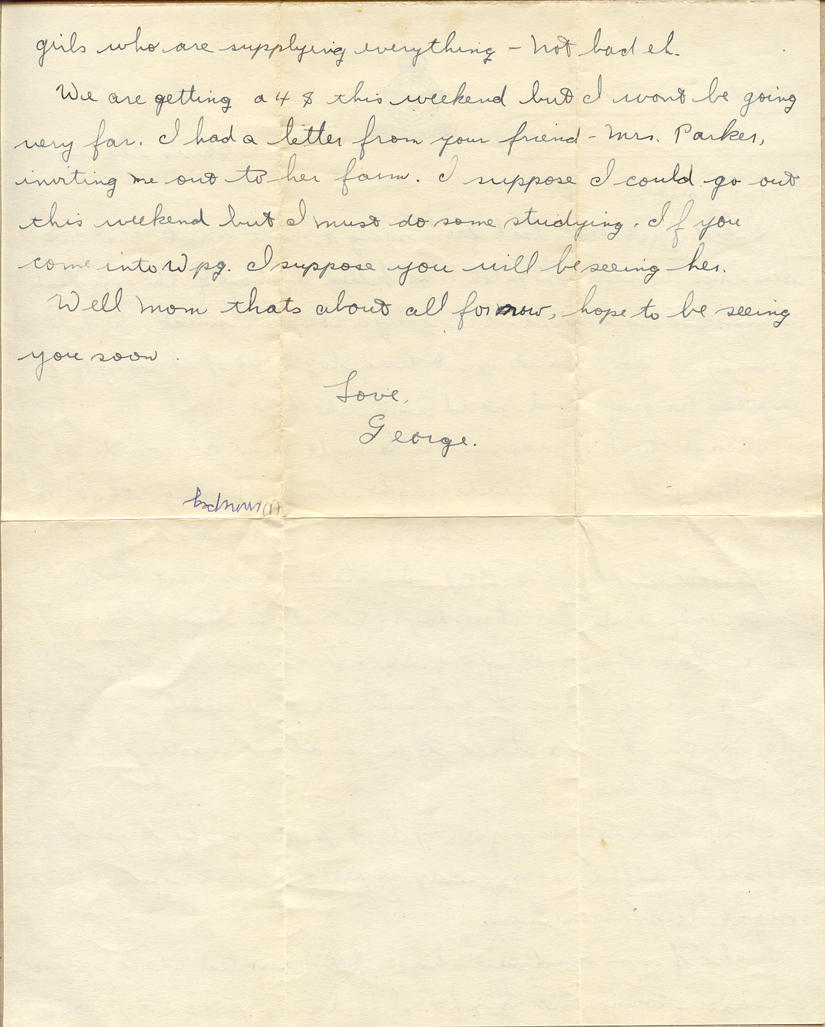 girls who are supplying everything - not bad eh.
We are getting a 48 this weekend but I wont be going
very far. I had a letter from your friend - Mrs. Parker,
inviting me out to her farm. I suppose I could go out
this weekend but I must do some studying. If you
come into Wpg. I suppose you will be seeing her.
Well Mom thats about all for now, hope to be seeing
you soon.
Love,
George.